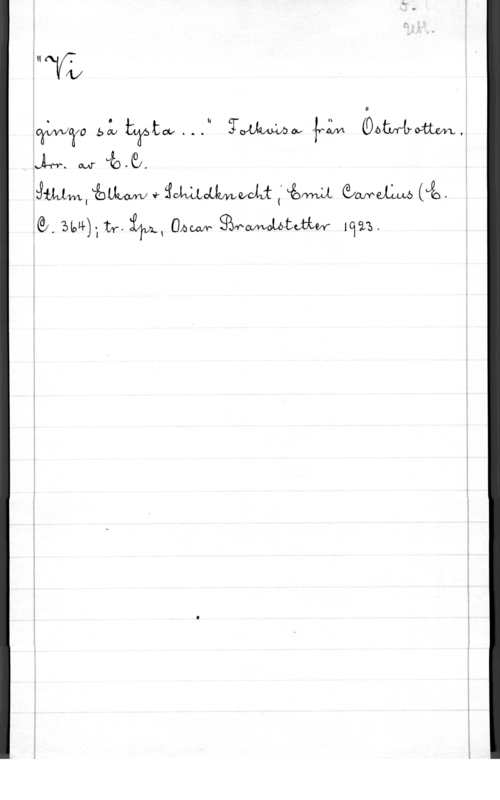 "Vi
gingo så tysta..." Folkvisa från Österbotten.
Arr. av E.C.
Sthlm, Elkan & Schildknecht, Emil Carelius (E.
C. 364); tr. Lpz, Oscar Brandstetter 1923.